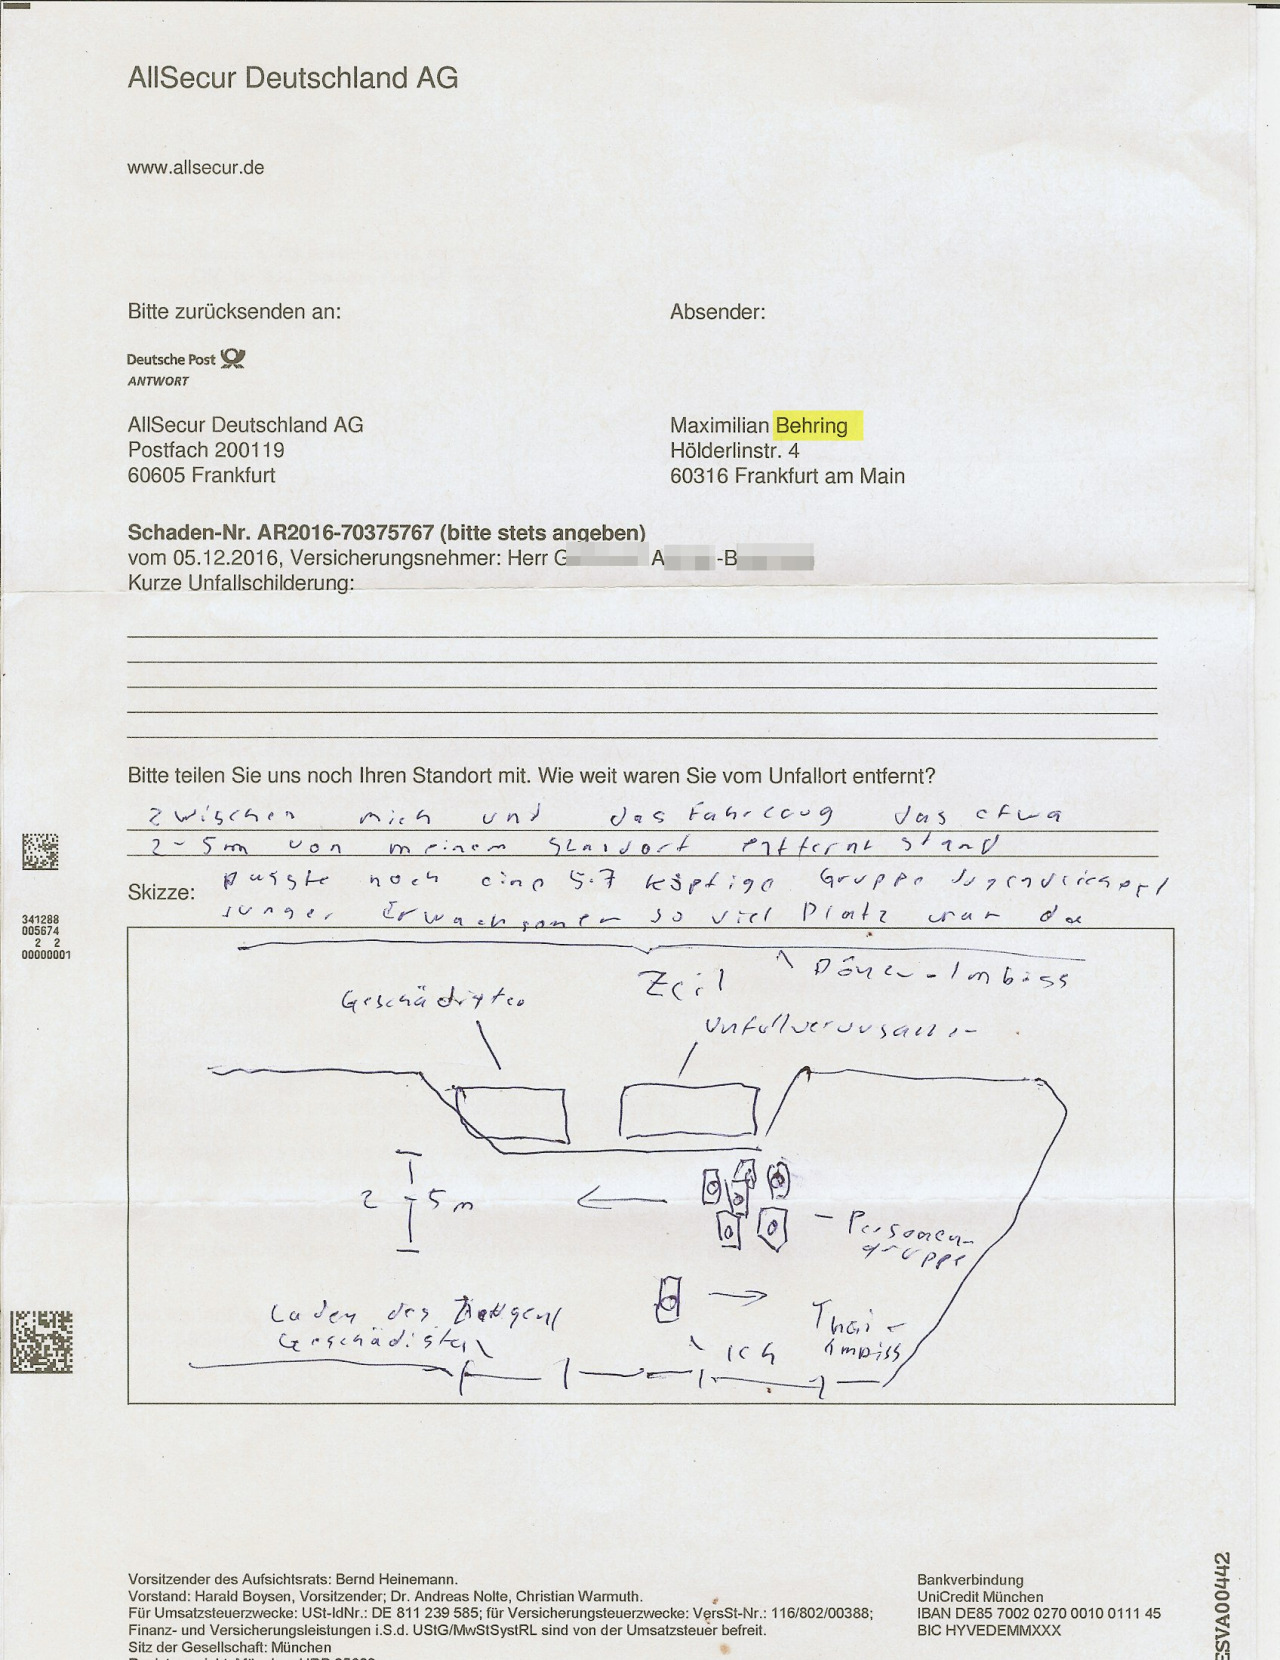 AllSecur Deutschland AG
www.allsecur.de
Bitte zurücksenden an:
Absender:
Deutsche Post
ANTWORT
AllSecur Deutschland AG
Postfach 200119
60605 Frankfurt
Maximilian Behring
Hölderlinstr. 4
60316 Frankfurt am Main
Schaden-Nr. AR2016-70375767 (bitte stets angeben)
vom 05.12.2016, Versicherungsnehmer: Herr G A -B
Kurze Unfallschilderung:
Bitte teilen Sie uns noch Ihren Standort mit. Wie weit waren Sie vom Unfallort entfernt?
zwischen mich und das Fahrzeug das etwa
2-5m von meinem Standort entfernt stand
passte noch eine 5-7 köpfige Gruppe Jugendlicher/
Skizze:
junger Erwachsener so viel Platz war da
Döner-Imbiss
Zeil
Geschädigter
Unfallverursacher
2 - 5 m
- Personen-
gruppe
Laden des
Geschädigten
Thai-
Imbiss
Ich
341288
005674
2 2
00000001
Vorsitzender des Aufsichtsrats: Bernd Heinemann.
Vorstand: Harald Boysen, Vorsitzender; Dr. Andreas Nolte, Christian Warmuth.
Für Umsatzsteuerzwecke: USt-IdNr.: DE 811 239 585; für Versicherungsteuerzwecke: VersSt-Nr.: 116/802/00388;
Finanz- und Versicherungsleistungen i.S.d. UStG/MwStSystRL sind von der Umsatzsteuer befreit.
Sitz der Gesellschaft: München
Bankverbindung
UniCredit München
IBAN DE85 7002 0270 0010 0111 45
BIC HYVEDEMMXXX
ESVA00442